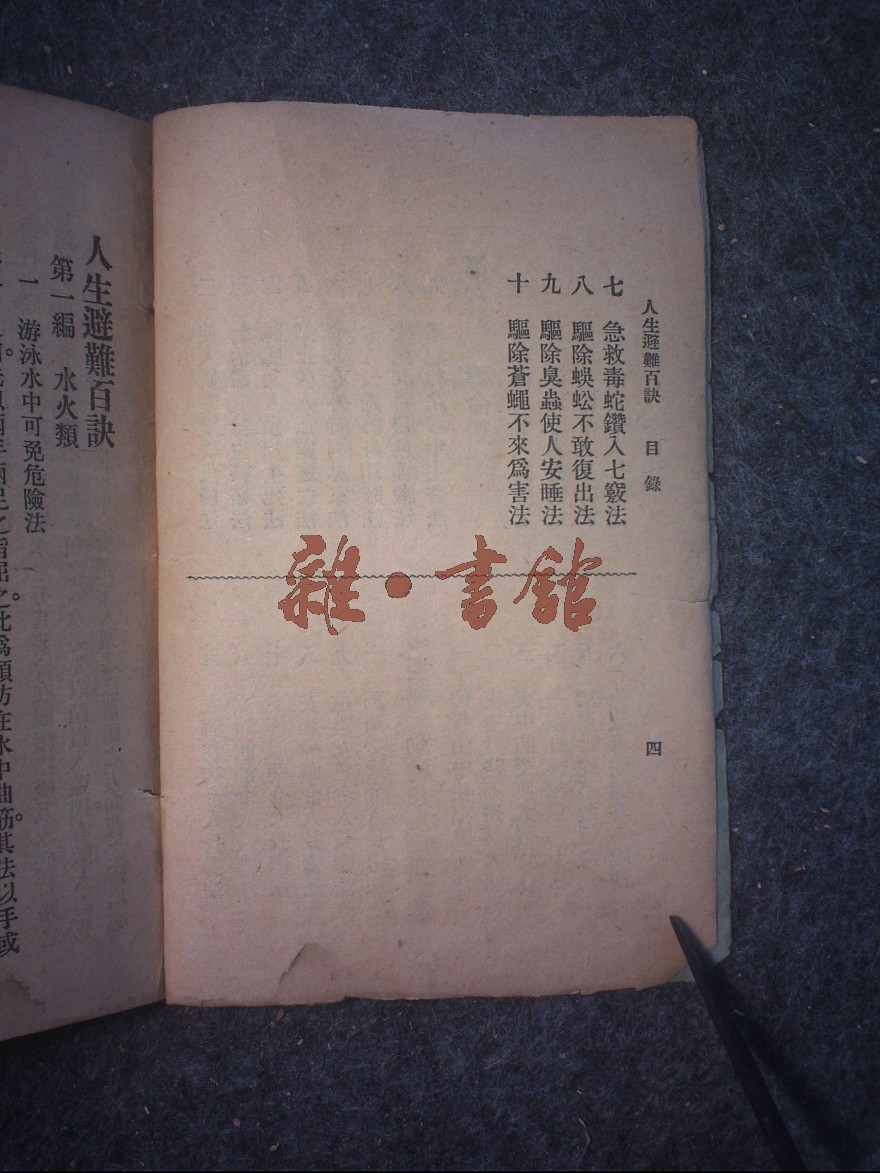 人生避難百訣　目錄
七　急救毒蛇鑽入七竅法
八　驅除蜈蚣不敢復出法
九　驅除臭蟲使人安睡法
十　驅除蒼蠅不來爲害法
四
雜·書館
人生避難百訣
第一編　水火類
一　游泳水中可免危險法
兩手兩足之指屈之此爲預防在水中抽筋。其法以手或